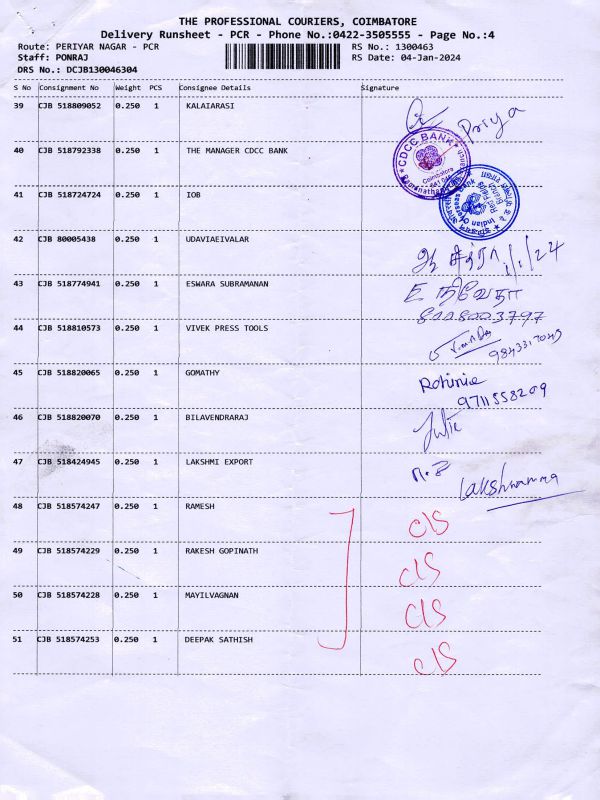 THE PROFESSIONAL COURIERS, COIMBATORE
Delivery Runsheet - PCR - Phone No.:0422-3505555 - Page No.:4
Route: PERIYAR NAGAR - PCR RS No.: 1300463
Staff: PONRAJ RS Date: 04-Jan-2024
DRS No.: DCJB130046304
S No Consignment No Weight PCS Consignee Details Signature
39 CJB 518809052 0.250 1 KALAIARASI Priya
40 CJB 518792338 0.250 1 THE MANAGER CDCC BANK CDCC BANK Coimbatore
41 CJB 518724724 0.250 1 IOB Indian Overseas Bank
42 CJB 80005438 0.250 1 UDAVIAEIVALAR
43 CJB 518774941 0.250 1 ESWARA SUBRAMANAN E நிவேதா
44 CJB 518810573 0.250 1 VIVEK PRESS TOOLS
45 CJB 518820065 0.250 1 GOMATHY Rohinie
9711558209
46 CJB 518820070 0.250 1 BILAVENDRARAJ Julie
47 CJB 518424945 0.250 1 LAKSHMI EXPORT
48 CJB 518574247 0.250 1 RAMESH C/S
49 CJB 518574229 0.250 1 RAKESH GOPINATH C/S
50 CJB 518574228 0.250 1 MAYILVAGNAN C/S
51 CJB 518574253 0.250 1 DEEPAK SATHISH C/S